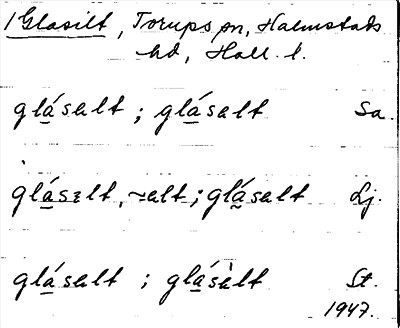 1 Glasilt, Torups sn, Halmstads
hd, Hall. l.
glásalt ; glásalt Sa.
glásɛlt, ~alt ; glásalt Lj.
glásalt ; glásàlt St.
1947.